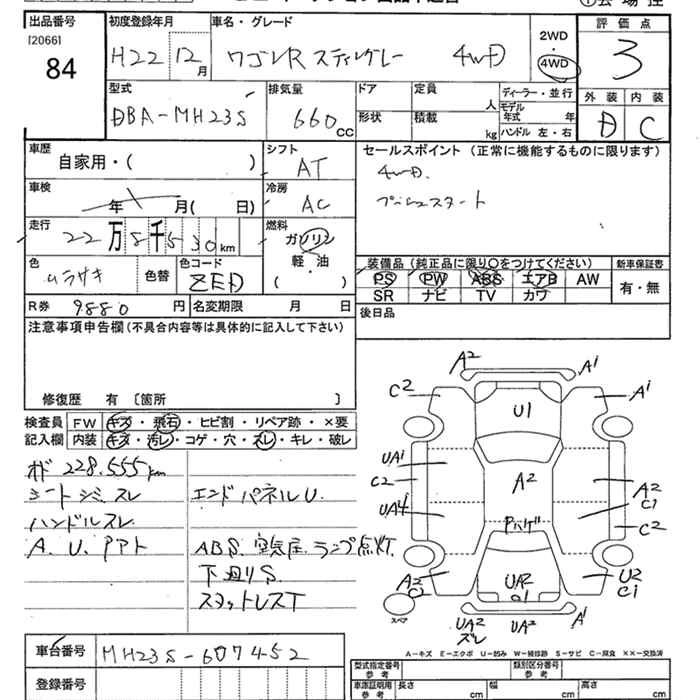 出品番号
[2066]
84
初度登録年月
H22 12月
車名・グレード
ワゴンR スティングレー 4WD
2WD
・
4WD
評価点
3
型式
DBA-MH23S
排気量
660 cc
ドア
形状
定員
人
積載
kg
ディーラー・並行
モデル
年式 年
ハンドル 左・右
外装
内装
D
C
車歴
自家用・( )
シフト
AT
セールスポイント (正常に機能するものに限ります)
4WD.
プッシュスタート
車検
年 月( 日)
冷房
AC
走行
22万8千530km
燃料
ガソリン
軽・油
( )
色
ムラサキ
色替
色コード
ZED
装備品(純正品に限り○をつけてください)
PS PW ABS エアB AW
SR ナビ TV カワ
新車保証書
有・無
R券 9880 円
名変期限 月 日
後日品
注意事項申告欄(不具合内容等は具体的に記入して下さい)
修復歴 有 [箇所 ]
検査員
記入欄
FW キズ・飛石・ヒビ割・リペア跡・×要
内装 キズ・汚レ・コゲ・穴・スレ・キレ・破レ
228,555km
シートシミ、スレ
ハンドルスレ
エンドパネルU.
A.U.Pアト
ABS.空気圧.ランプ点灯
下廻りS
スタットレスT
A2
A1
C2
A1
U1
UA1
C2
UA4
A2
Pハゲ
A2
C1
C2
A2
C2
U2
C1
UA2
C1
スペア
UA2
ズレ
UA2
A1
A-キズ E-エクボ U-凹み W-補修跡 S-サビ C-腐食 ××-交換済
車台番号
MH23S-607452
登録番号
型式指定番号
参考
類別区分番号
参考
車庫証明用
参考
長さ
cm
幅
cm
高さ
cm